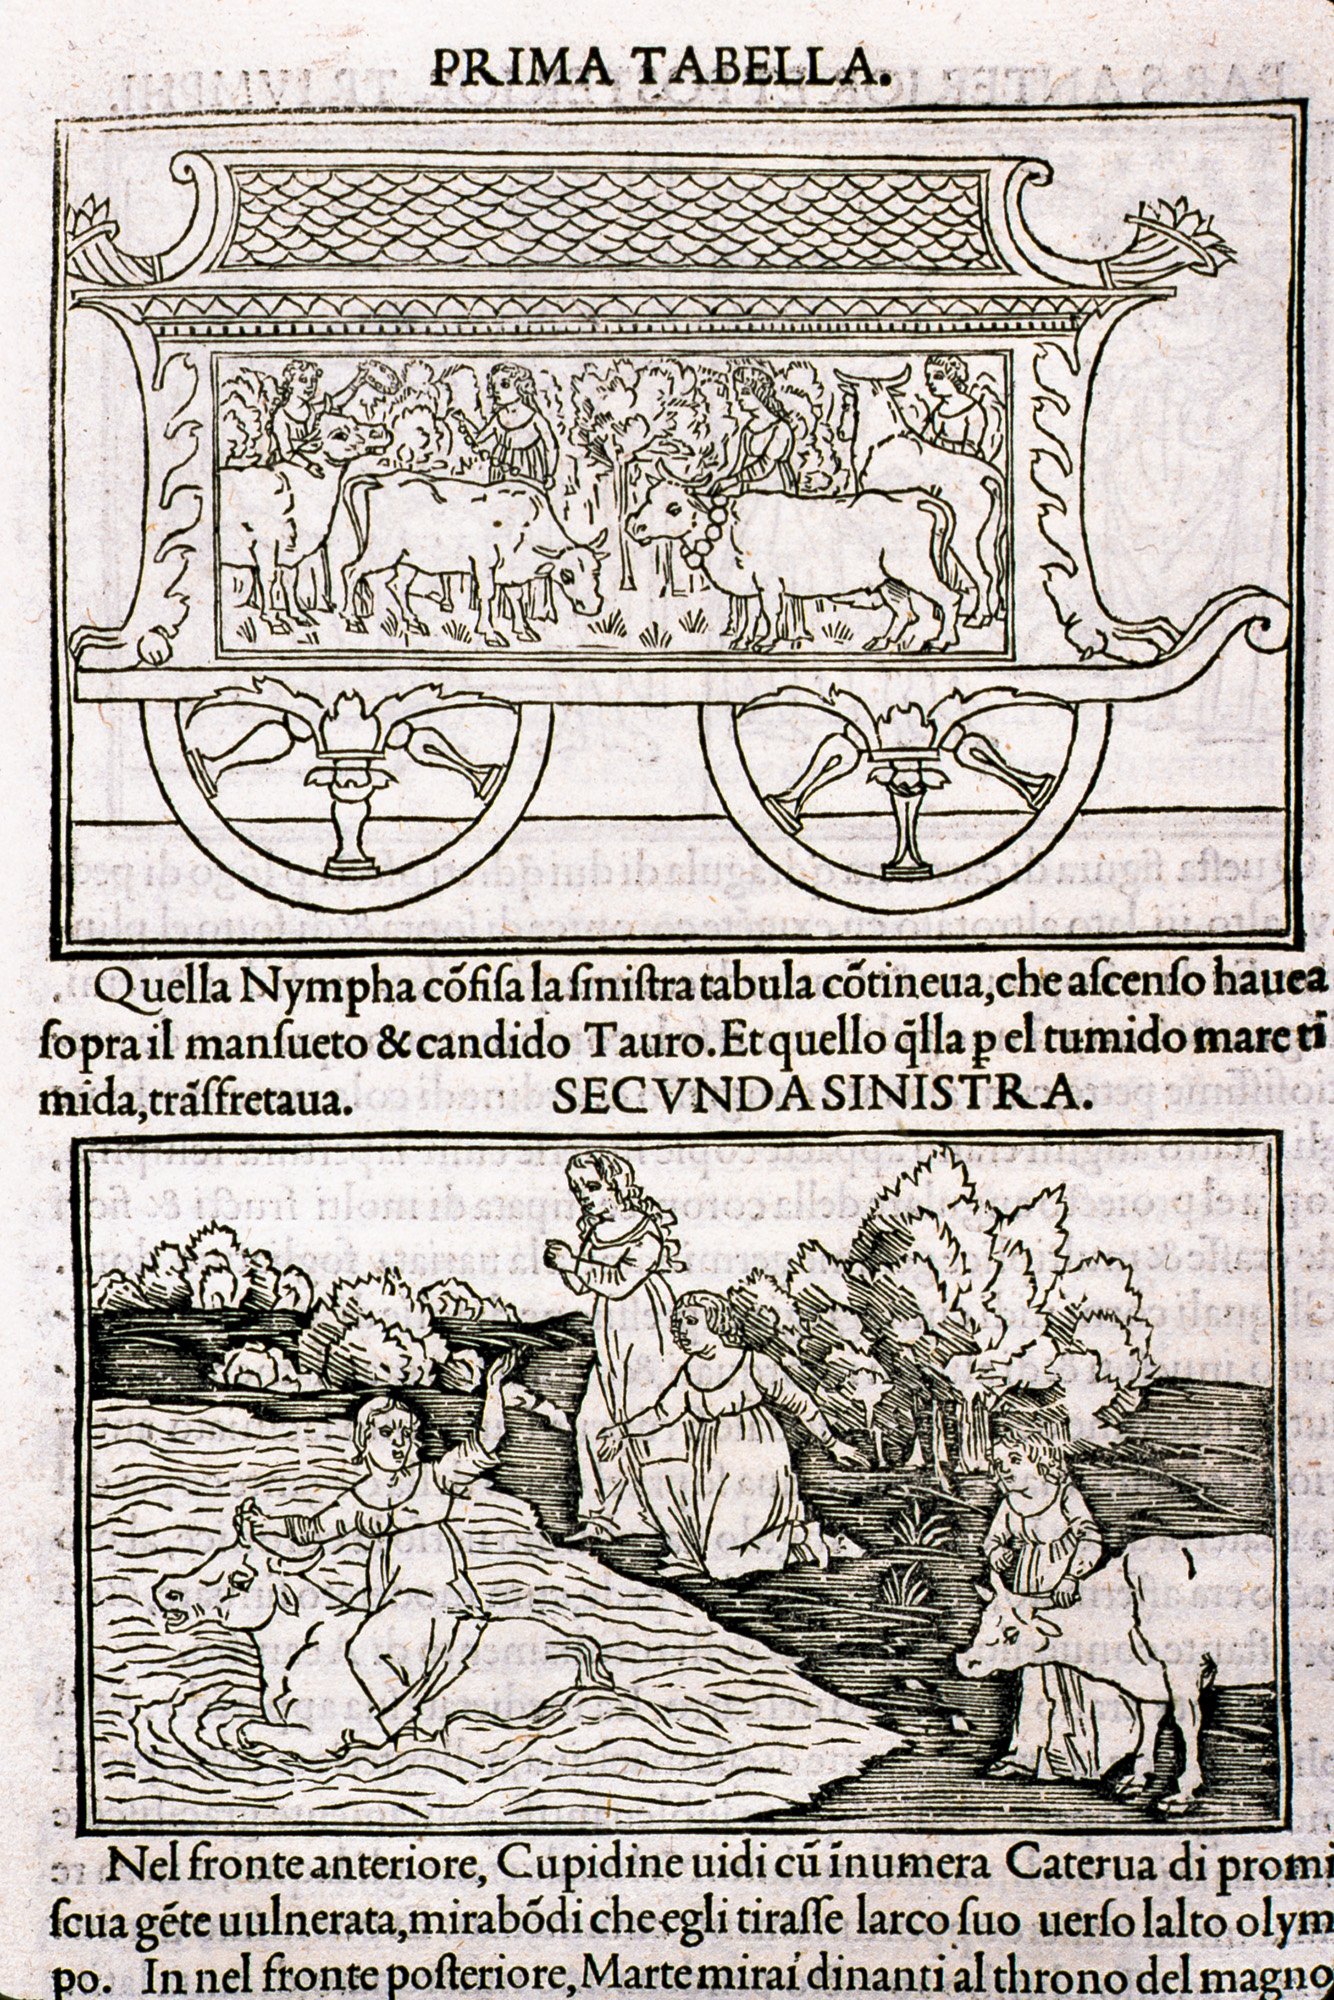 PRIMA TABELLA.
Quella Nympha cõfisa la sinistra tabula cõtineua, che ascenso hauea
sopra il mansueto & candido Tauro. Et quello q̃lla ꝑ el tumido mare ti
mida, trãsfretaua.
SECVNDA SINISTRA.
Nel fronte anteriore, Cupidine uidi cũ ĩnumera Caterua di promi
scua gẽte uulnerata, mirabõdi che egli tirasse larco suo uerso lalto olym
po. In nel fronte posteriore, Marte mirai dinanti al throno del magno